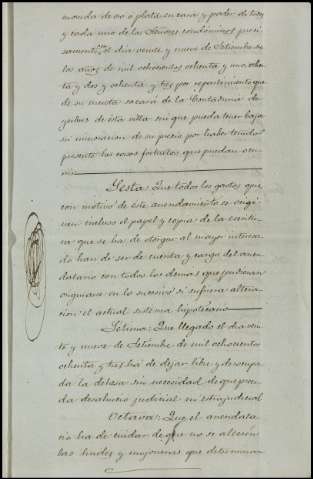 moneda de oro o plata en casa y poder de todos
y cada uno de los Señores condóminos preci-
samente el día veinte y nueve de Setiembre de
los años de mil ochocientos ochenta y uno, ochen-
ta y dos y ochenta y tres por repartimiento que
de su cuenta sacará de la Contaduría de
de esta villa sin que pueda tener baja
ni minoracion de su precio por haber tenido
presente los casos fortuitos que puedan ocur-
rir.
Sesta: Que todos los gastos que
con motivo de este arrendamiento se origi-
nen incluso el papel y copia de la escritu-
ra que se ha de otorgar al mayor interesa-
do han de ser de cuenta y cargo del arren-
datario con todos los demas que pudieran
originarse en lo sucesivo si sufriera altera-
cion el actual sistema hipotecario.
Sétima: Que llegado el dia vein-
te y nueve de Setiembre de mil ochocientos
ochenta y tres ha de dejar libre y desocupa-
da la dehesa sin necesidad de que prece-
da desahucio judicial ni estrajudicial
Octava: Que el arrendata-
rio ha de cuidar de que no se alteren
las lindes y mojoneras que determinan